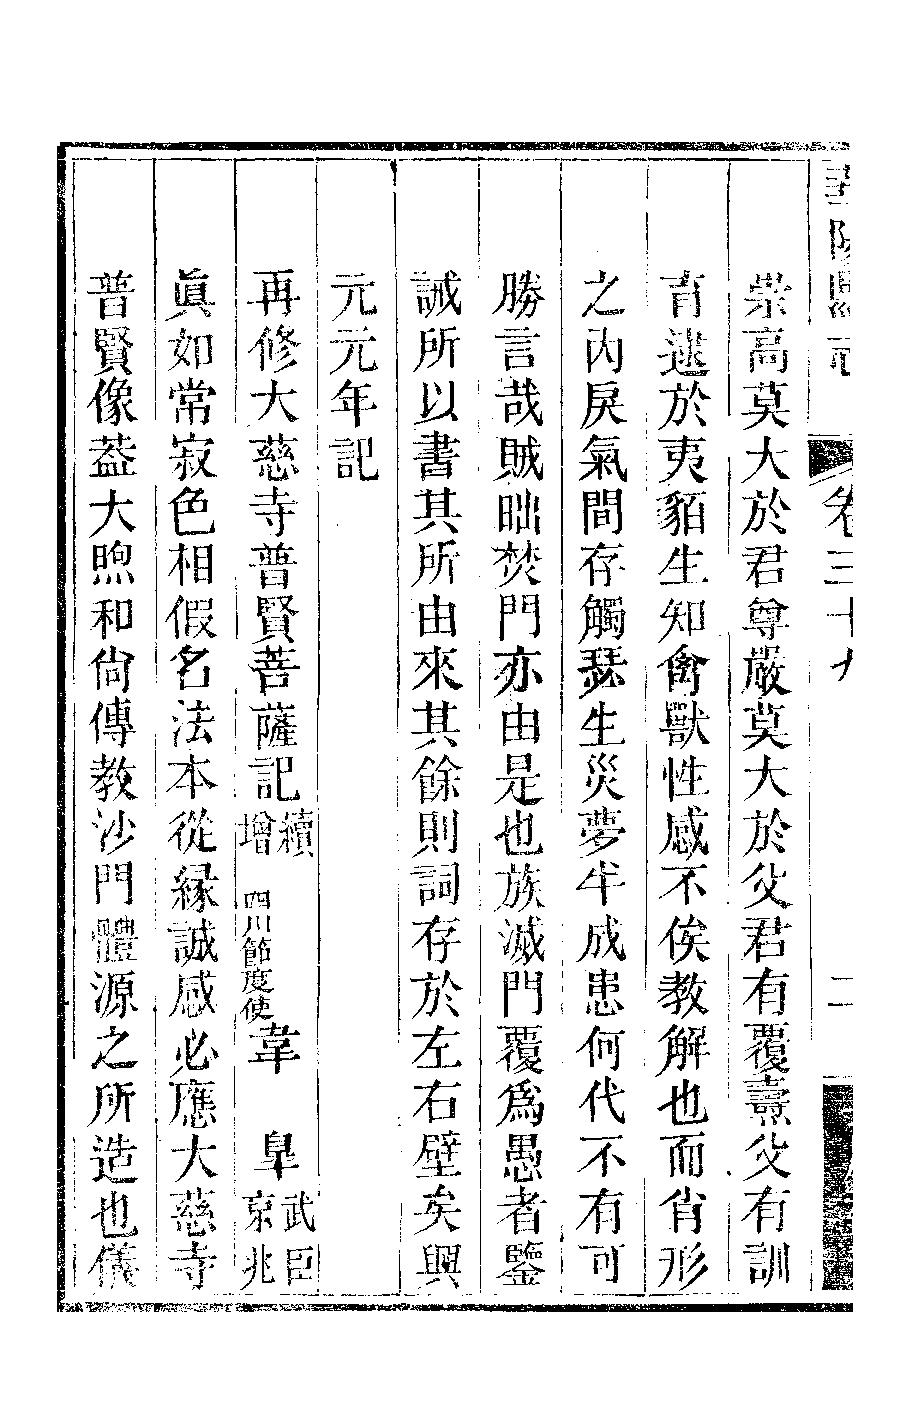 華陽縣志
卷三十九
二
崇高莫大於君尊嚴莫大於父君有覆燾父有訓
育逮於夷貊生知禽獸性感不俟教解也而肖形
之內戾氣間存觸瑟生災夢牛成患何代不有可
勝言哉賊昢焚門亦由是也族滅門覆爲愚者鑒
誡所以書其所由來其餘則詞存於左右壁矣興
元元年記
再修大慈寺普賢菩薩記續增 四川節度使 韋 臯武臣京兆
眞如常寂色相假名法本從緣誠感必應大慈寺
普賢像葢大煦和尙傳教沙門體源之所造也儀